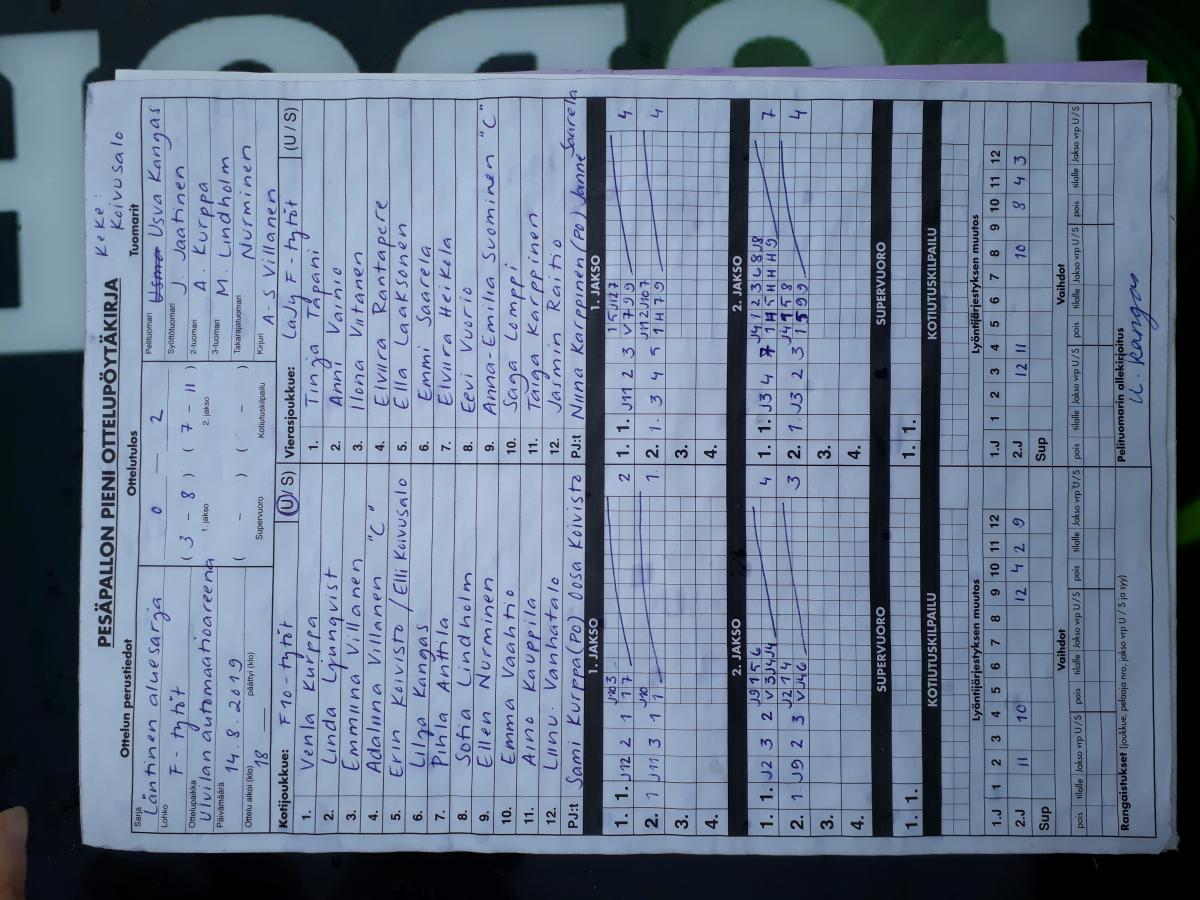 PESÄPALLON PIENI OTTELUPÖYTÄKIRJA
KeKe:
Koivusalo
Ottelun perustiedot
Ottelutulos
Tuomarit
Sarja
Läntinen aluesarja
Lohko
F-tytöt
Ottelupaikka
Ulvilan automaatioareena
Päivämäärä
14.8.2019
Ottelu alkoi (klo)
18
päättyi (klo)
0 — 2
( 3 – 8 ) ( 7 – 11 )
1. jakso 2. jakso
( – ) ( – )
Supervuoro Kotiutuskilpailu
Pelituomari Usva Kangas
Syöttötuomari J. Jaatinen
2-tuomari A. Kurppa
3-tuomari M. Lindholm
Takarajatuomari Nurminen
Kirjuri A-S Villanen
Kotijoukkue: F10-tytöt (U/ S)
1. Venla Kurppa
2. Linda Ljungqvist
3. Emmiina Villanen
4. Adaliina Villanen "C"
5. Erin Koivisto / Elli Koivusalo
6. Lilja Kangas
7. Pihla Anttila
8. Sofia Lindholm
9. Ellen Nurminen
10. Emma Vaahtio
11. Aino Kauppila
12. Liinu Vanhatalo
PJ:t Sami Kurppa(PO) Oosa Koivisto
Vierasjoukkue: LaJy F-tytöt (U / S)
1. Tinja Tapani
2. Anni Vainio
3. Ilona Viitanen
4. Elviira Rantapere
5. Ella Laaksonen
6. Emmi Saarela
7. Elviira Heikola
8. Eevi Vuorio
9. Anna-Emilia Suominen "C"
10. Saga Lomppi
11. Taiga Karppinen
12. Jasmin Raitio
PJ:t Niina Karppinen(PO) Janne Saarela
1. JAKSO
1. 1. J12 2 1 1 7 2
J103
2. 1. J11 3 1 1 1
J10
3.
4.
1. JAKSO
1. 1. J11 2 3 V 7 9 9 4
2. 1. 3 4 5 1 H 7 9 4
3.
4.
2. JAKSO
1. 1. J2 3 2 V 3 J4 J4 4
J9 1 5 6
2. 1. J9 2 3 V J4 6 3
J2 1 4
3.
4.
2. JAKSO
1. 1. J3 4 7 1 H 5 H H H 9 7
J4 1 2 3 6 8 J8
2. 1. J3 2 3 1 5 9 9 4
J4 1 5 8
3.
4.
SUPERVUORO
1. 1.
SUPERVUORO
1. 1.
KOTIUTUSKILPAILU
KOTIUTUSKILPAILU
Lyöntijärjestyksen muutos
1.J 1 2 3 4 5 6 7 8 9 10 11 12
2.J 11 10 12 4 2 9
Sup
Lyöntijärjestyksen muutos
1.J 1 2 3 4 5 6 7 8 9 10 11 12
2.J 12 11 10 8 4 3
Sup
Vaihdot
pois tilalle Jakso vrp U / S pois tilalle Jakso vrp U / S pois tilalle Jakso vrp U / S
Vaihdot
pois tilalle Jakso vrp U / S pois tilalle Jakso vrp U / S pois tilalle Jakso vrp U / S
Rangaistukset (joukkue, pelaaja nro, jakso vrp U / S ja syy)
Pelituomarin allekirjoitus
U. Kangas